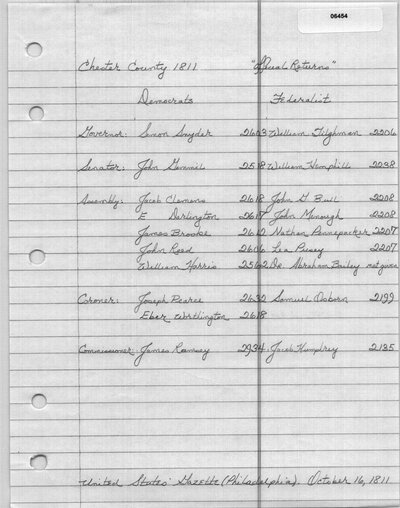 06454
Chester County 1811 "Official Returns"
Democrats Federalist
Governor: Simon Snyder 2603 William Tilghman 2206
Senator: John Gemmil 2518 William Hemphill 2238
Assembly: Jacob Clemens 2618 John G. Bull 2208
E Darlington 2617 John Menough 2208
James Brooke 2612 Nathan Pennepacker 2207
John Reed 2606 Lea Pusey 2207
William Harris 2562 Dr. Abraham Bailey not given
Coroner: Joseph Pearce 2632 Samuel Osborn 2199
Eber Worthington 2618
Commissioner: James Ramsey 2934 Jacob Humphrey 2135
United States' Gazette (Philadelphia). October 16, 1811